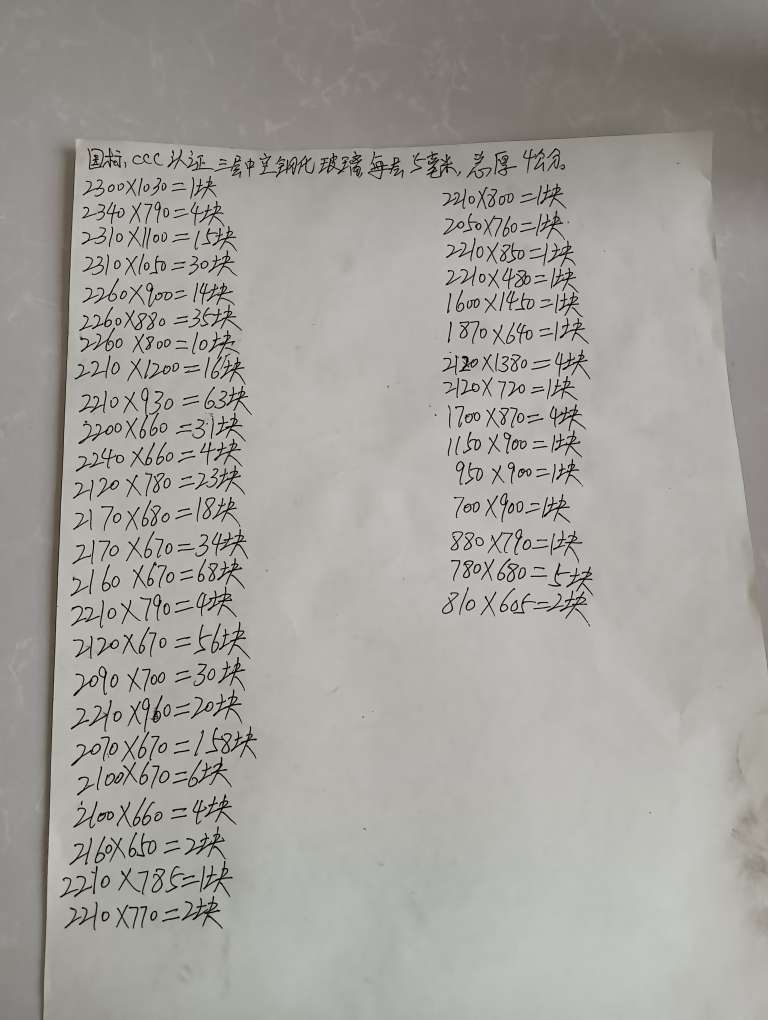 国标,CCC认证 三层中空钢化玻璃,每层5毫米,总厚4公分。
2300X1030=1块
2340X790=4块
2310X1100=15块
2310X1050=30块
2260X900=14块
2260X880=35块
2260X800=10块
2210X1200=16块
2210X930=63块
2200X660=31块
2240X660=4块
2120X780=23块
2170X680=18块
2170X670=34块
2160X670=68块
2210X790=4块
2120X670=56块
2090X700=30块
2210X960=20块
2070X670=158块
2100X670=6块
2100X660=4块
2160X650=2块
2210X785=1块
2210X770=2块
2210X800=1块
2050X760=1块
2210X850=1块
2210X480=1块
1600X1450=1块
1870X640=1块
2120X1380=4块
2120X720=1块
1700X870=4块
1150X900=1块
950X900=1块
700X900=1块
880X790=1块
780X680=5块
810X605=2块